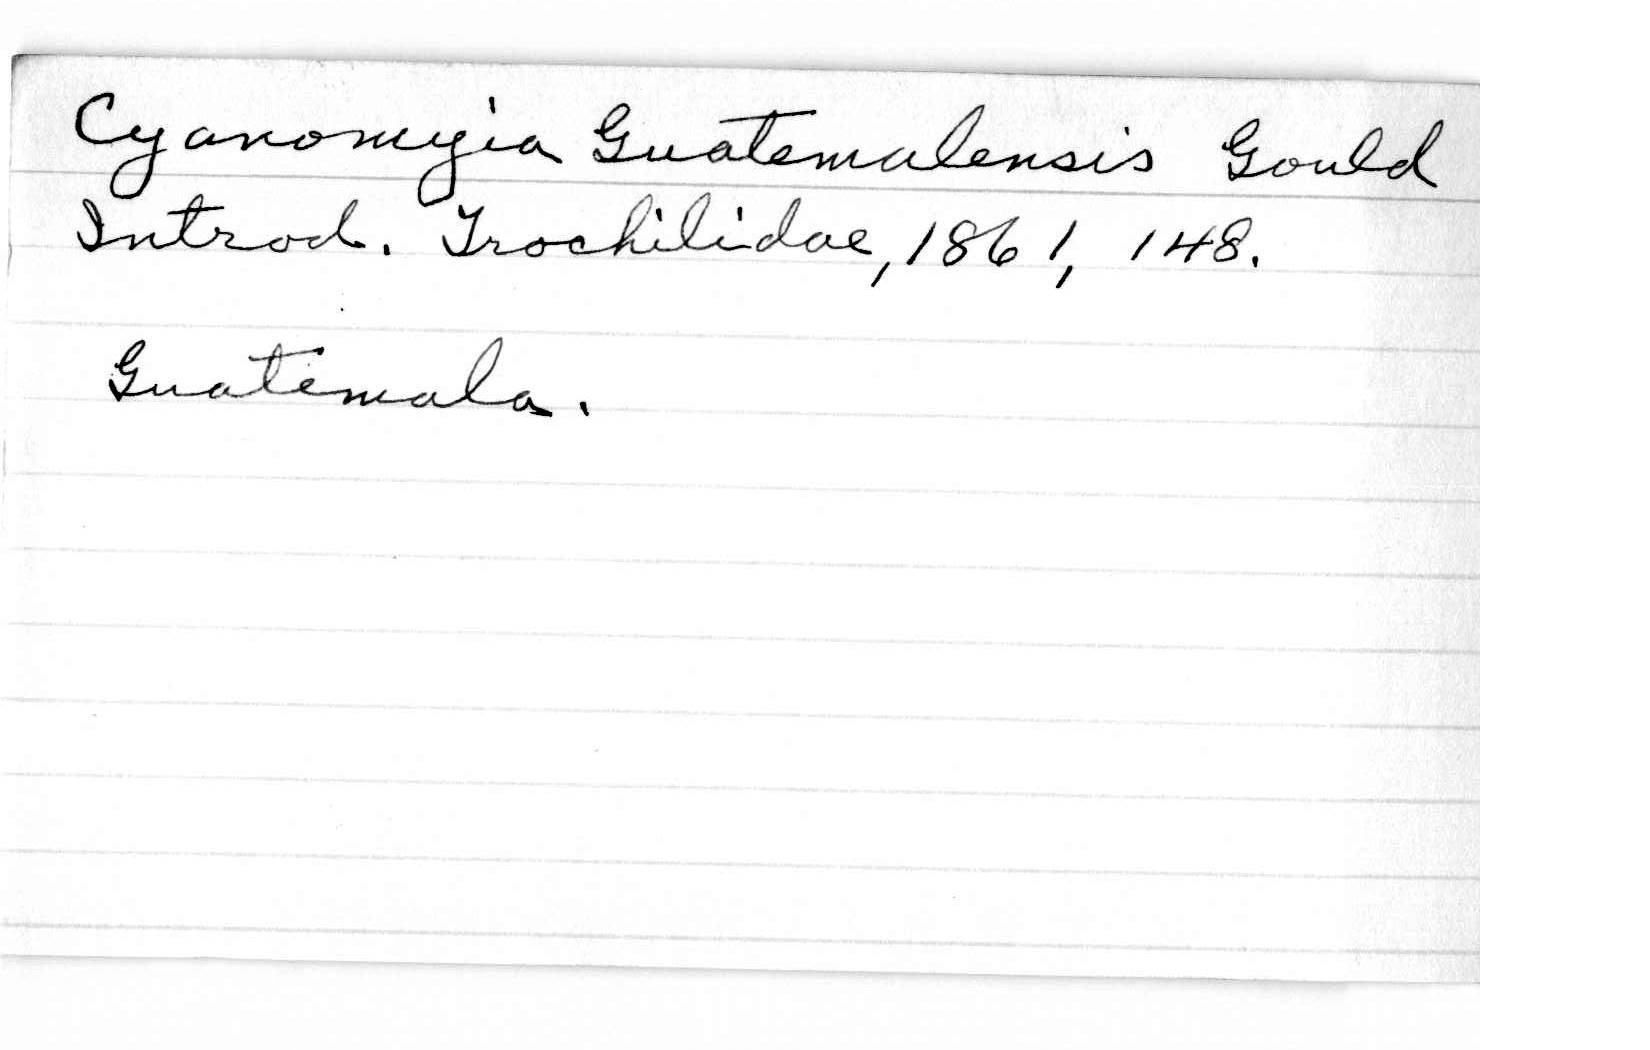 Cyanomyia Guatemalensis Gould
Introd. Trochilidae, 1861, 148.
Guatemala.